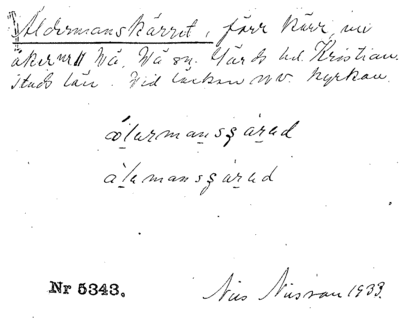 Åldermanskärret, förr kärr, nu
åker nr 11 Vä. Vä sn. Gärds hd. Kristian
stads län. Vid bäcken nv. kyrkan.
ålarmansʒärad
ålamansʒärad
Nr 5343.
Nils Nilsson 1933.